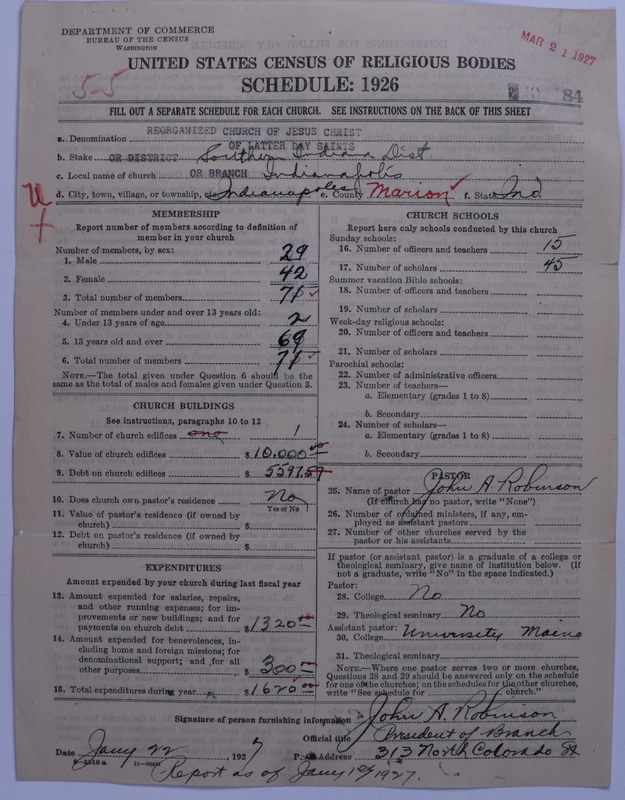 DEPARTMENT OF COMMERCE
BUREAU OF THE CENSUS
WASHINGTON
MAR 21 1927
UNITED STATES CENSUS OF RELIGIOUS BODIES
5-5
SCHEDULE: 1926
84
FILL OUT A SEPARATE SCHEDULE FOR EACH CHURCH. SEE INSTRUCTIONS ON THE BACK OF THIS SHEET
a. Denomination REORGANIZED CHURCH OF JESUS CHRIST
OF LATTER DAY SAINTS
b. Stake OR DISTRICT Southern Indiana Dist
c. Local name of church OR BRANCH Indianapolis
d. City, town, village, or township, Indianapolis e. County Marion f. State Ind.
MEMBERSHIP
Report number of members according to definition of
member in your church
Number of members, by sex:
1. Male 29
2. Female 42
3. Total number of members 71
Number of members under and over 13 years old:
4. Under 13 years of age 2
5. 13 years old and over 69
6. Total number of members 71
NOTE.—The total given under Question 6 should be the
same as the total of males and females given under Question 3.
CHURCH BUILDINGS
See instructions, paragraphs 10 to 12
7. Number of church edifices one 1
8. Value of church edifices $10,000.00
9. Debt on church edifices $5597.57
10. Does church own pastor's residence No
Yes or No
11. Value of pastor's residence (if owned by
church) $
12. Debt on pastor's residence (if owned by
church) $
EXPENDITURES
Amount expended by your church during last fiscal year
13. Amount expended for salaries, repairs,
and other running expenses; for im-
provements or new buildings; and for
payments on church debt $1320
14. Amount expended for benevolences, in-
cluding home and foreign missions; for
denominational support; and for all
other purposes $300
15. Total expenditures during year $1620
CHURCH SCHOOLS
Report here only schools conducted by this church
Sunday schools:
16. Number of officers and teachers 15
17. Number of scholars 45
Summer vacation Bible schools:
18. Number of officers and teachers
19. Number of scholars
Week-day religious schools:
20. Number of officers and teachers
21. Number of scholars
Parochial schools:
22. Number of administrative officers
23. Number of teachers—
a. Elementary (grades 1 to 8)
b. Secondary
24. Number of scholars—
a. Elementary (grades 1 to 8)
b. Secondary
PASTOR
25. Name of pastor John A. Robinson
(If church has no pastor, write "None")
26. Number of ordained ministers, if any, em-
ployed as assistant pastors
27. Number of other churches served by the
pastor or his assistants
If pastor (or assistant pastor) is a graduate of a college or
theological seminary, give name of institution below. (If
not a graduate, write "No" in the space indicated.)
Pastor:
28. College No
29. Theological seminary No
Assistant pastor:
30. College University Maine
31. Theological seminary
NOTE.—Where one pastor serves two or more churches,
Questions 28 and 29 should be answered only on the schedule
for one of the churches; on the schedules for the other churches,
write "See schedule for church."
Signature of person furnishing information John A. Robinson
Official title President of Branch
Date Jany 22, 1927 P. O. Address 313 North Colorado St
Report as of Jany 1st 1927.